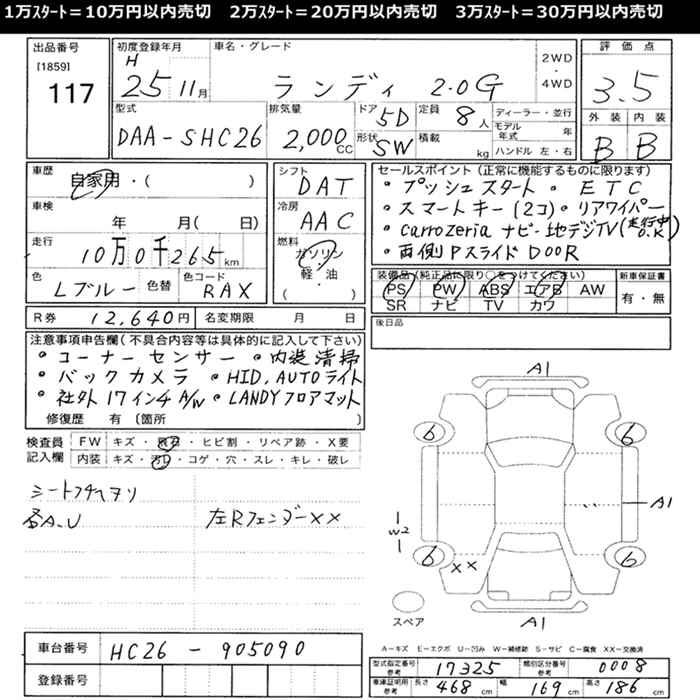 1万ｽﾀｰﾄ＝10万円以内売切　2万ｽﾀｰﾄ＝20万円以内売切　3万ｽﾀｰﾄ＝30万円以内売切
出品番号
[1859]
117
初度登録年月
H
25 11月
車名・グレード
ランディ 2.0G
2WD
・
4WD
評価点
3.5
型式
DAA-SHC26
排気量
2,000 CC
ドア 5D
形状 SW
定員 8人
積載 kg
ディーラー・並行
モデル年式 年
ハンドル 左・右
外装 内装
B B
車歴
自家用・( )
車検
年 月( 日)
走行
10万0千265km
色
Lブルー
色替
色コード
RAX
シフト
DAT
冷房
AAC
燃料
ガソリン
・
軽・油
( )
セールスポイント (正常に機能するものに限ります)
・プッシュスタート ・ETC
・スマートキー(2コ)・リアワイパー
・carrozeria ナビ・地デジTV(走行中O.K)
・両側PスライドDOOR
装備品(純正品に限り○をつけてください)
PS PW ABS エアB AW
SR ナビ TV カワ
新車保証書
有・無
後日品
R券 12,640円
名変期限 月 日
注意事項申告欄(不具合内容等は具体的に記入して下さい)
・コーナーセンサー ・内装清掃
・バックカメラ ・HID,AUTOライト
・社外17インチA/W ・LANDYフロアマット
修復歴 有 〔箇所
検査員記入欄
FW キズ・飛石・ヒビ割・リペア跡・X要
内装 キズ・汚レ・コゲ・穴・スレ・キレ・破レ
各A.U
左Rフェンダーxx
A1
6 6
A1
W2
6 6
xx
スペア
A1
A-キズ E-エクボ U-凹み W-補修跡 S-サビ C-腐食 XX-交換済
車台番号
HC26 - 905090
登録番号
型式指定番号
参考
17325
類別区分番号
参考
0008
車庫証明用
参考
長さ 468 cm
幅 169 cm
高さ 186 cm